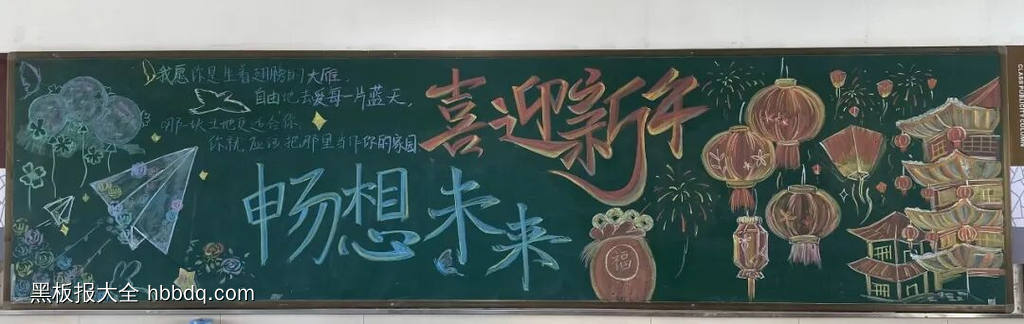 我愿你是生着翅膀的大雁，
自由地去爱每一片蓝天，
哪一块土地更适合你
你就应该把那里当作你的家园
喜迎新年
畅想未来
福
黑板报大全 hbbdq.com